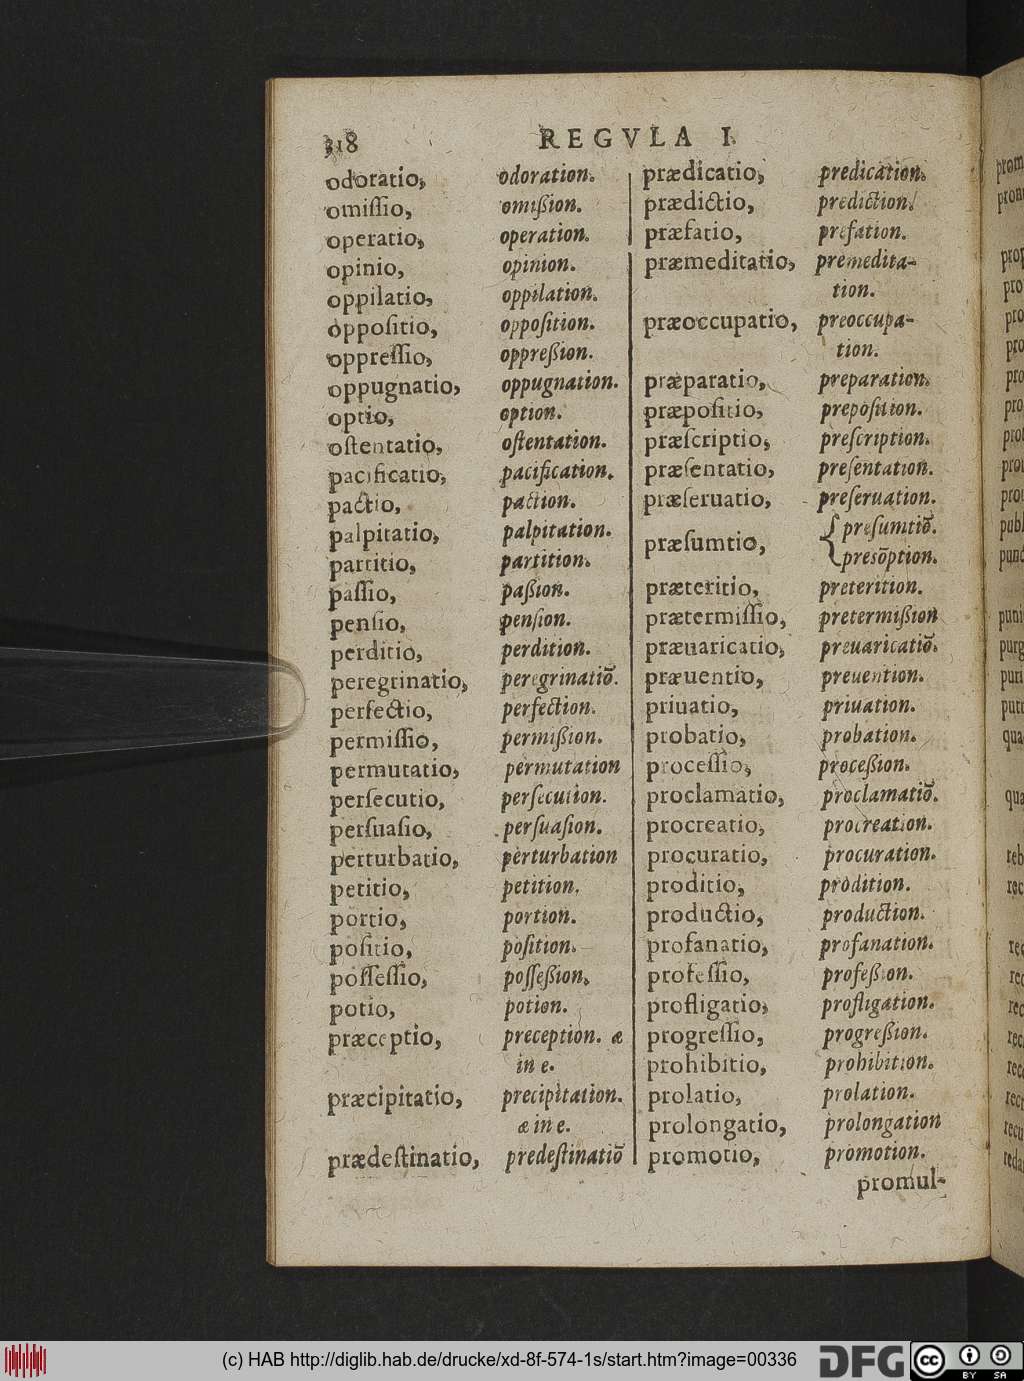 318 REGVLA I.
odoratio, odoration.
omiſſio, omißion.
operatio, operation.
opinio, opinion.
oppilatio, oppilation.
oppoſitio, oppoſition.
oppreſſio, oppreßion.
oppugnatio, oppugnation.
optio, option.
oſtentatio, oſtentation.
pacificatio, pacification.
pactio, paction.
palpitatio, palpitation.
partitio, partition.
paſſio, paßion.
penſio, penſion.
perditio, perdition.
peregrinatio, peregrinatiõ.
perfectio, perfection.
permiſſio, permißion.
permutatio, permutation
perſecutio, perſecution.
perſuaſio, perſuaſion.
perturbatio, perturbation
petitio, petition.
portio, portion.
poſitio, poſition.
poſſeſſio, poſſeßion.
potio, potion.
præceptio, preception. æ
in e.
præcipitatio, precipitation.
æ in e.
prædeſtinatio, predeſtinatiõ
prædicatio, predication.
prædictio, prediction.
præfatio, prefation.
præmeditatio, premedita-
tion.
præoccupatio, preoccupa-
tion.
præparatio, preparation.
præpoſitio, prepoſition.
præſcriptio, preſcription.
præſentatio, preſentation.
præſeruatio, preſeruation.
præſumtio, { preſumtiõ.
presõption.
præteritio, preterition.
prætermiſſio, pretermißion
præuaricatio, preuaricatiõ.
præuentio, preuention.
priuatio, priuation.
probatio, probation.
proceſſio, proceßion.
proclamatio, proclamatiõ.
procreatio, procreation.
procuratio, procuration.
proditio, prodition.
productio, production.
profanatio, profanation.
profeſſio, profeßion.
profligatio, profligation.
progreſſio, progreßion.
prohibitio, prohibition.
prolatio, prolation.
prolongatio, prolongation
promotio, promotion.
promul-
(c) HAB http://diglib.hab.de/drucke/xd-8f-574-1s/start.htm?image=00336
DFG
cc BY SA